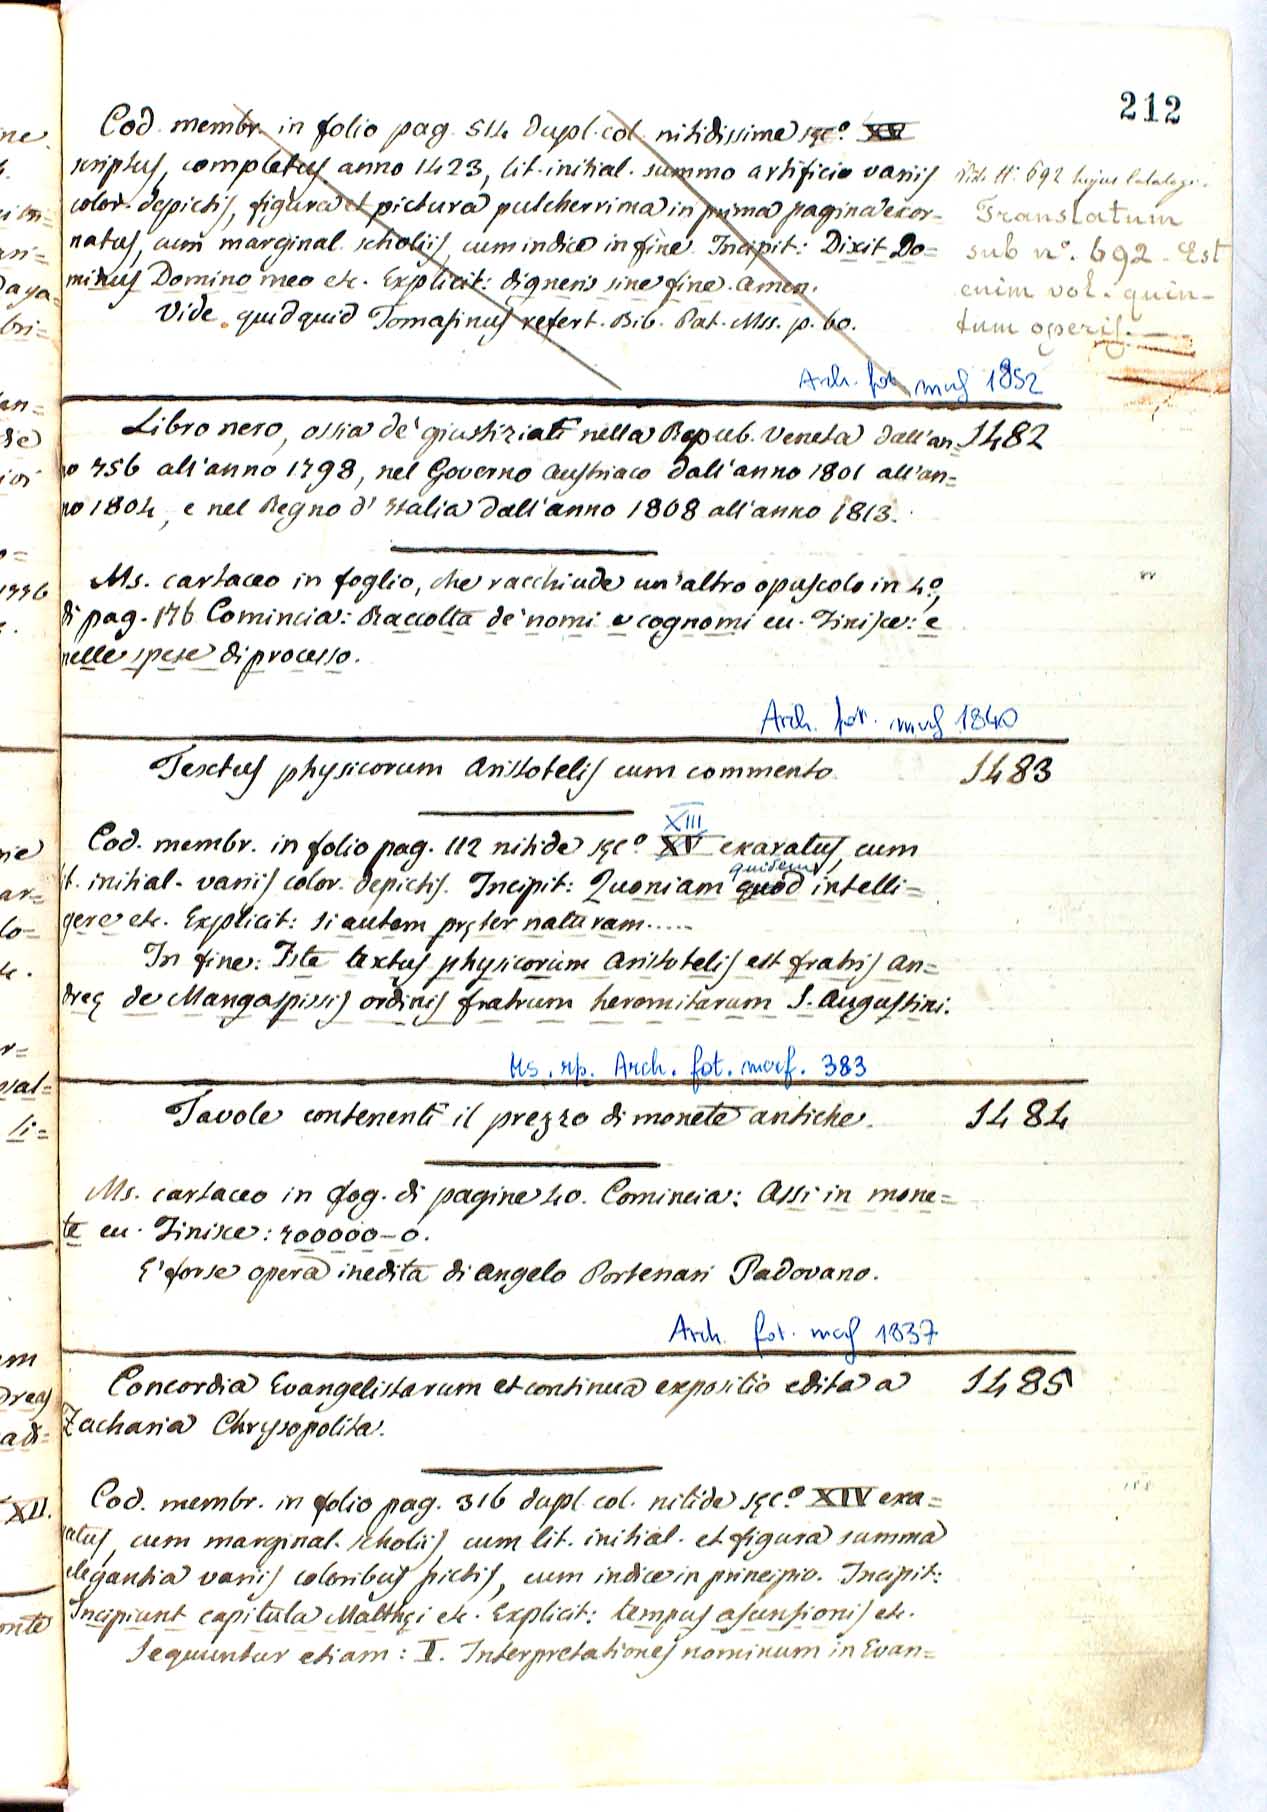 212
Cod. membr. in folio pag. 514 dupl. col. nitidissime sęc.º XV
scriptus, completus anno 1423, lit. initial. summo artificio variis
color. depictis, figura et pictura pulcherrima in prima pagina exor=
natus, cum marginal. scholiis, cum indice in fine. Incipit: Dixit Do=
minus Domino meo etc. Explicit: digneris sine fine. amen.
Vide quidquid Tomasinus refert. Bib. Pat. Mss. p. 60.
Vide N. 692 hujus Catalogi.
Translatum
sub nº. 692. Est
enim vol. quin-
tum operis.
Arch. fot. mss 1852
Libro nero, ossia de' giustiziati nella Repub. Veneta dall'an= 1482
no 756 all'anno 1798, nel Governo Austriaco dall'anno 1801 all'an=
no 1804, e nel Regno d'Italia dall'anno 1808 all'anno 1813.
Ms. cartaceo in foglio, che racchiude un'altro opuscolo in 4.º,
di pag. 176 Comincia: Raccolta de' nomi e cognomi ec. Finisce: e
nelle spese di processo.
Arch. fot. mss 1840
Textus physicorum Aristotelis cum commento 1483
Cod. membr. in folio pag. 112 nitide sęc.º XV XIII exaratus, cum
lit. initial. variis color. depictis. Incipit: Quoniam quod quidem intelli=
gere etc. Explicit: si autem pręter naturam.....
In fine: Iste textus physicorum Aristotelis est fratris An=
dreę de Mangaspissis ordinis fratrum heremitarum S. Augustini.
Ms. rip. Arch. fot. mss. 383
Tavole contenenti il prezzo di monete antiche. 1484
Ms. cartaceo in fog. di pagine 40. Comincia: Assi in mone=
te ec. Finisce: 200000-0.
E' forse opera inedita di Angelo Portenari Padovano.
Arch. fot. mss 1837
Concordia Evangelistarum et continua expositio edita a 1485
Zacharia Chrysopolita.
Cod. membr. in folio pag. 316 dupl. col. nitide sęc.º XIV exa=
ratus, cum marginal. scholiis, cum lit. initial. et figura summa
elegantia variis coloribus pictis, cum indice in principio. Incipit:
Incipiunt capitula Matthęi etc. Explicit: tempus ascensionis etc.
Sequuntur etiam: I. Interpretationes nominum in Evan=